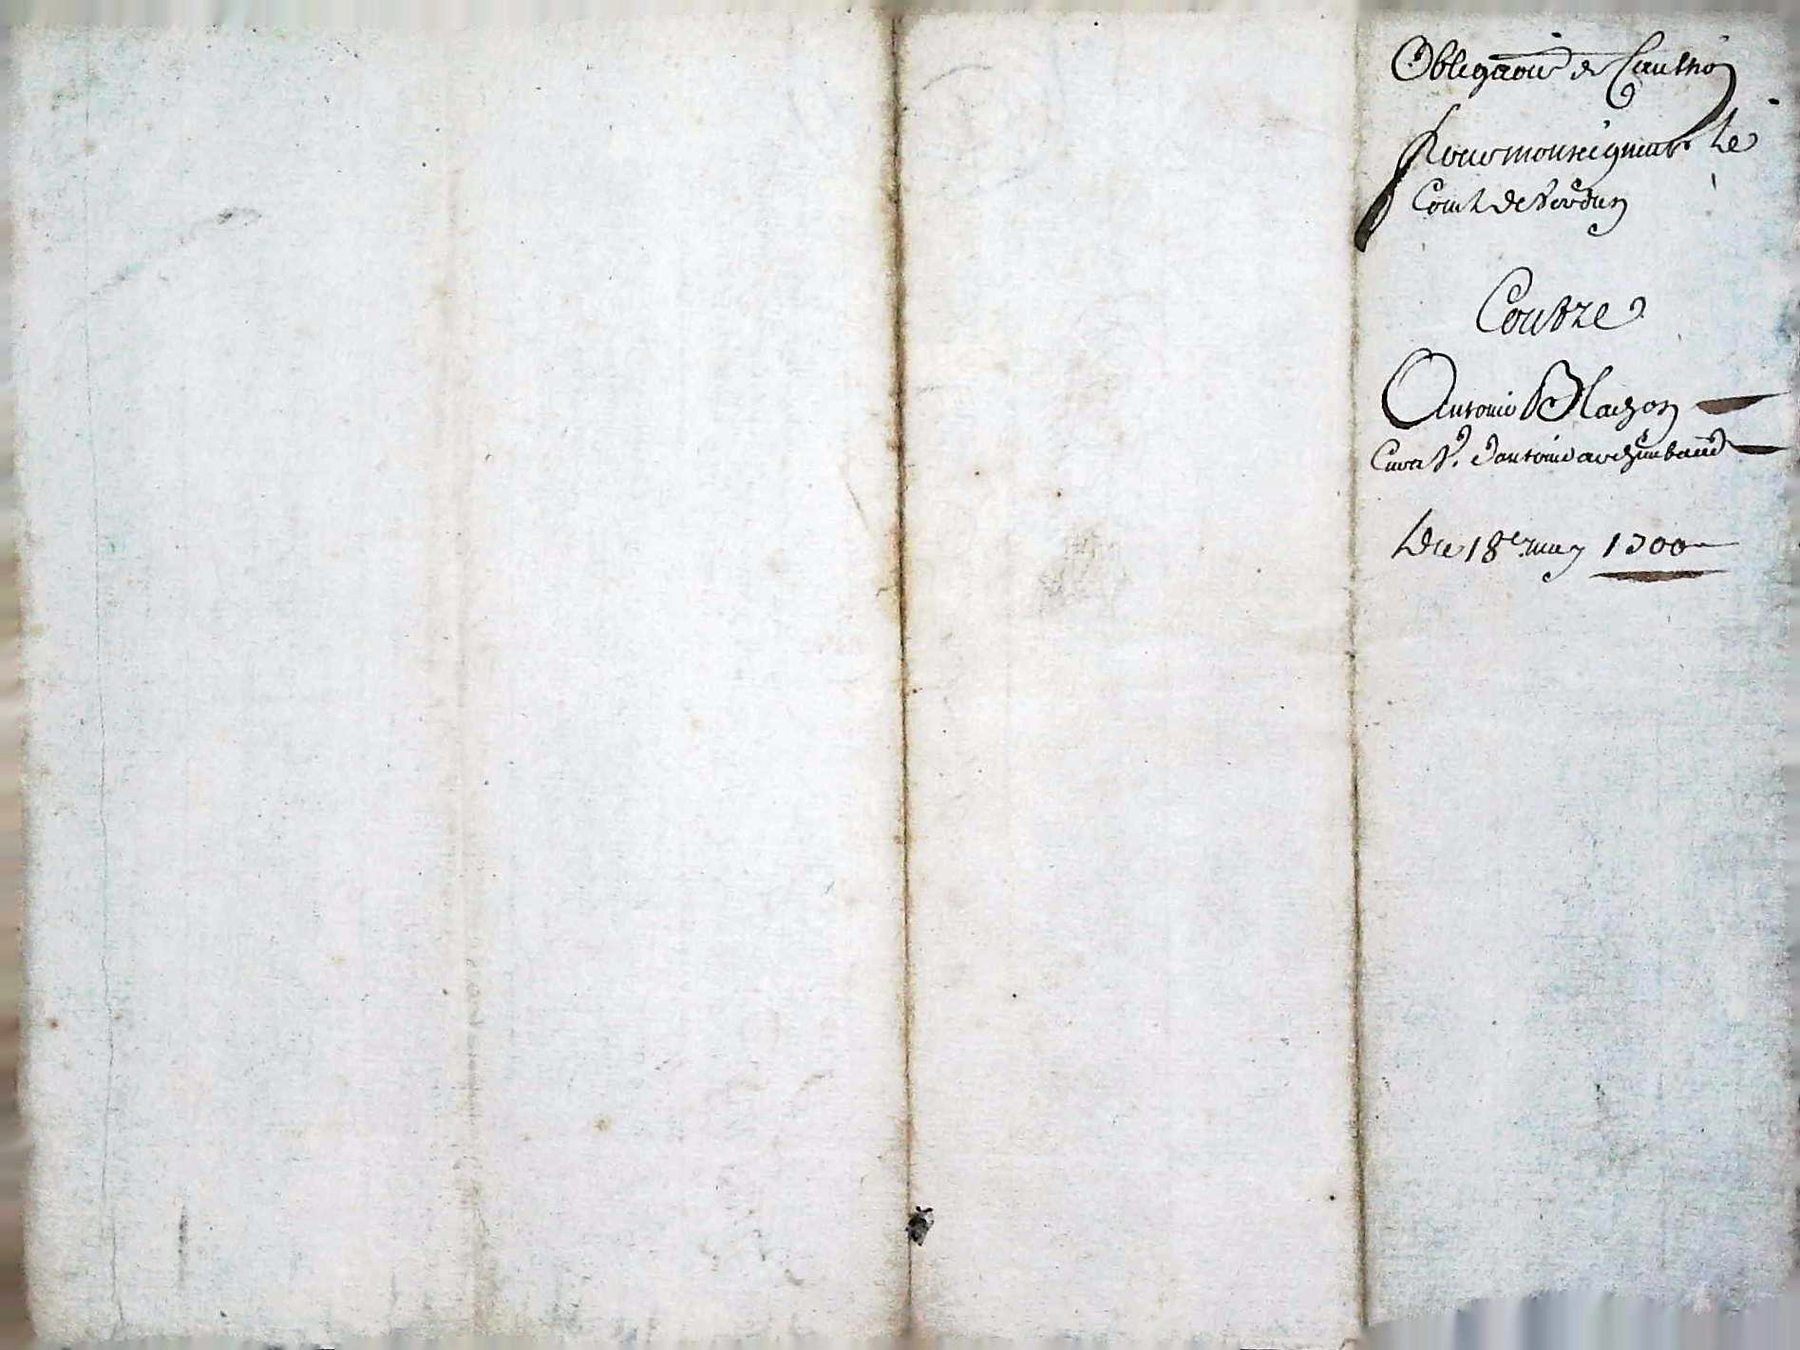 Obligãoñ de Cauthion
Pour monseigneur Le
Comte de Verdun
Contre
Antoine Blazon
Curat.r d'antoine archimbaud
Du 18e may 1700